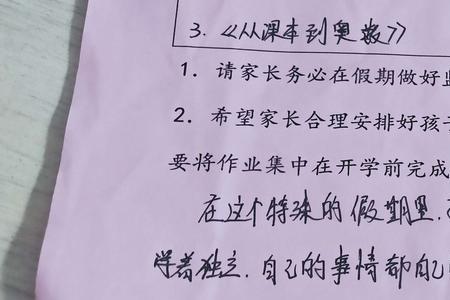 3. 《从课本到奥数》
1. 请家长务必在假期做好
2. 希望家长合理安排好孩
要将作业集中在开学前完成
在这个特殊的假期里,
学着独立. 自己的事情都自己